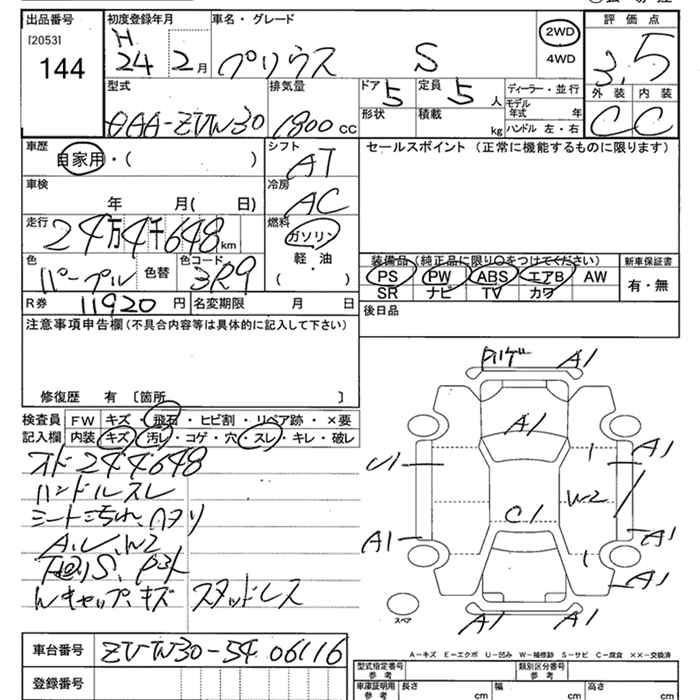 出品番号 初度登録年月 車名・グレード 評価点
[2053] 144 H 24 2月 プリウス S 2WD 4WD 3.5
型式 排気量 ドア 5 定員 5人 ディーラー・並行 外装 内装
AAA-ZVW30 1800cc 形状 積載 kg モデル年式 年 ハンドル 左・右 C C
車歴 自家用・( ) シフト AT セールスポイント (正常に機能するものに限ります)
車検 年 月( 日) 冷房 AC
走行 24万4千648km 燃料 ガソリン 軽・油 ( )
装備品(純正品に限り○をつけてください) 新車保証書
色 パープル 色替 色コード 3R9 PS PW ABS エアB AW 有・無
SR ナビ TV カワ
R券 11920円 名変期限 月 日 後日品
注意事項申告欄(不具合内容等は具体的に記入して下さい)
修復歴 有 〔箇所 〕
検査員 FW キズ・飛石・ヒビ割・リペア跡・×要
記入欄 内装 キズ・汚レ・コゲ・穴・スレ・キレ・破レ
オド244648
ハンドルスレ
シート汚れ、ヘタリ
A、U、W2
Wキャップ、キズ スタッドレス
A1
A1
A1
U1
W2
C1
A1
A1
A1
A1 A1
スペア
A-キズ E-エクボ U-凹み W-補修跡 S-サビ C-腐食 ××-交換済
車台番号 ZVW30-5406116
登録番号
型式指定番号 参考 類別区分番号 参考
車庫証明用 参考 長さ cm 幅 cm 高さ cm